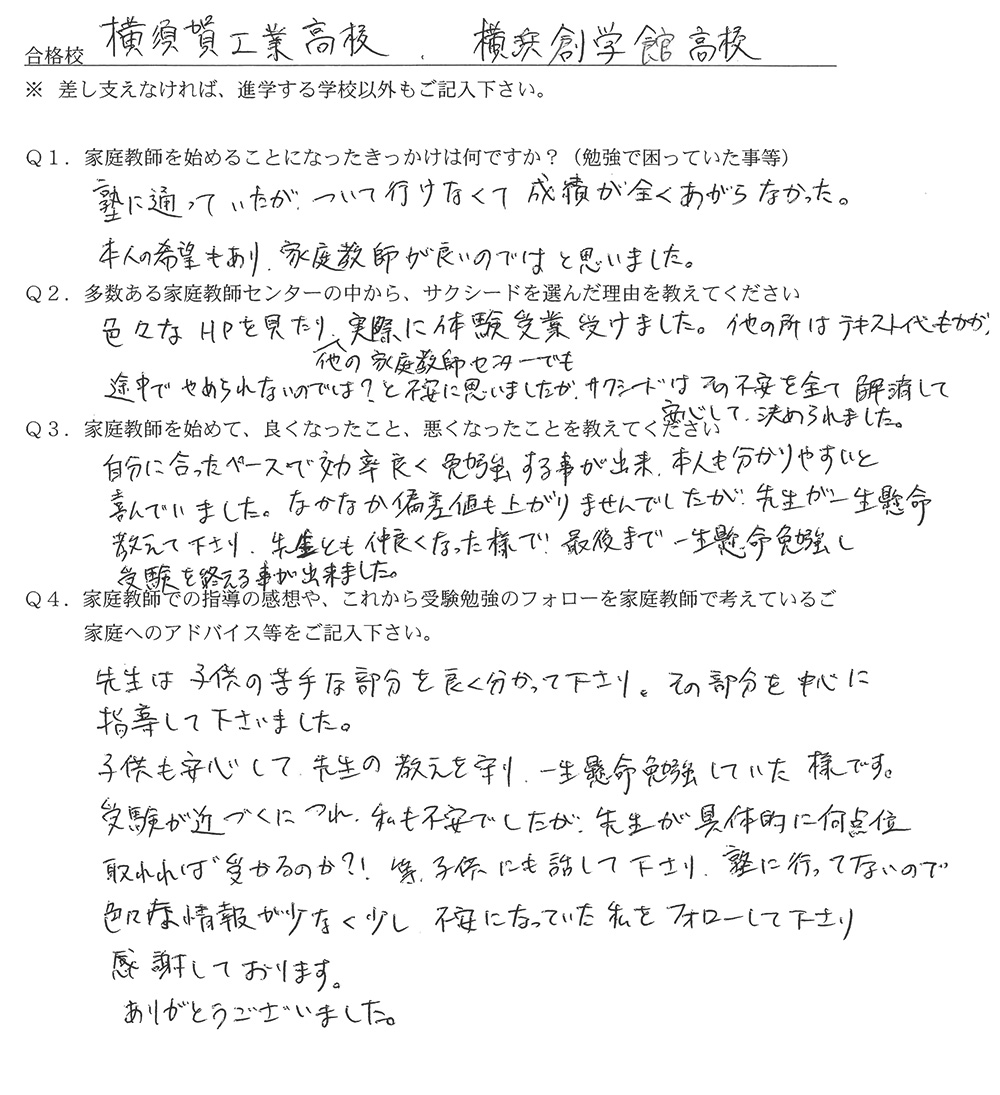 合格校 横須賀工業高校 . 横浜創学館高校
※ 差し支えなければ、進学する学校以外もご記入下さい。
Q1．家庭教師を始めることになったきっかけは何ですか？（勉強で困っていた事等）
塾に通っていたが、ついて行けなくて 成績が全くあがらなかった。
本人の希望もあり、家庭教師が良いのではと思いました。
Q2．多数ある家庭教師センターの中から、サクシードを選んだ理由を教えてください
色々なHPを見たり、実際に体験授業受けました。他の所はテキスト代もかかり、
他の家庭教師センターでも
途中でやめられないのでは？と不安に思いましたが、サクシードはその不安を全て解消して
安心して、決められました。
Q3．家庭教師を始めて、良くなったこと、悪くなったことを教えてください
自分に合ったペースで効率良く勉強する事が出来、本人も分かりやすいと
喜んでいました。なかなか偏差値も上がりませんでしたが、先生が一生懸命
教えて下さり、先生とも仲良くなった様で、最後まで一生懸命勉強し
受験を終える事が出来ました。
Q4．家庭教師での指導の感想や、これから受験勉強のフォローを家庭教師で考えているご
家庭へのアドバイス等をご記入下さい。
先生は子供の苦手な部分を良く分かって下さり。その部分を中心に
指導して下さいました。
子供も安心して、先生の教えを守り、一生懸命勉強していた様です。
受験が近づくにつれ、私も不安でしたが、先生が具体的に何点位
取れれば受かるのか？！等、子供にも話して下さり、塾に行ってないので
色々な情報が少なく少し 不安になっていた私をフォローして下さり
感謝しております。
ありがとうございました。